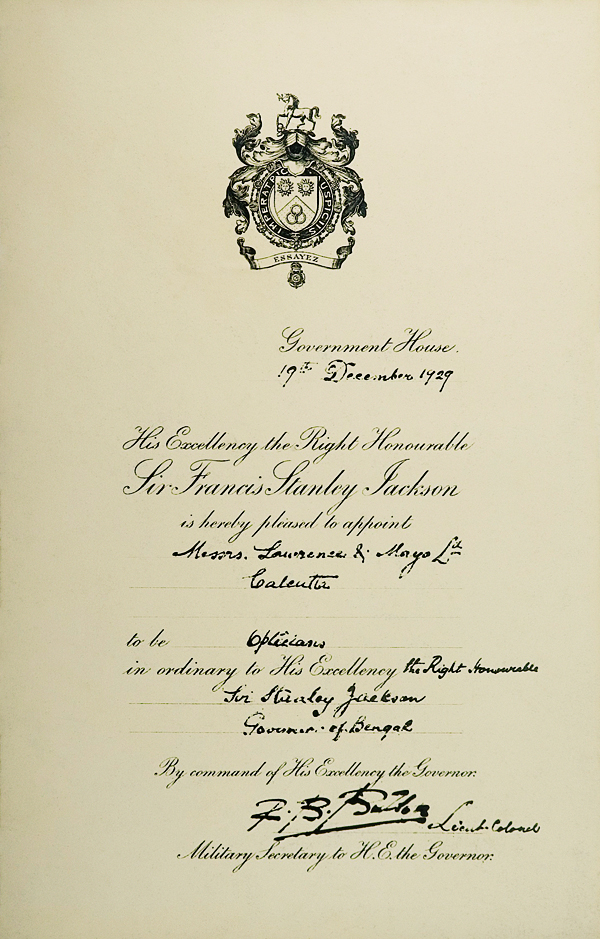 IMPERATRICIS AUSPICIIS
ESSAYEZ
Government House.
19th December 1929
His Excellency the Right Honourable
Sir Francis Stanley Jackson
is hereby pleased to appoint
Messrs. Lawrence & Mayo Ltd
Calcutta
to be Opticians
in ordinary to His Excellency the Right Honourable
Sir Stanley Jackson
Governor of Bengal
By command of His Excellency the Governor.
R. B. Lieut-Colonel
Military Secretary to H.E. the Governor.